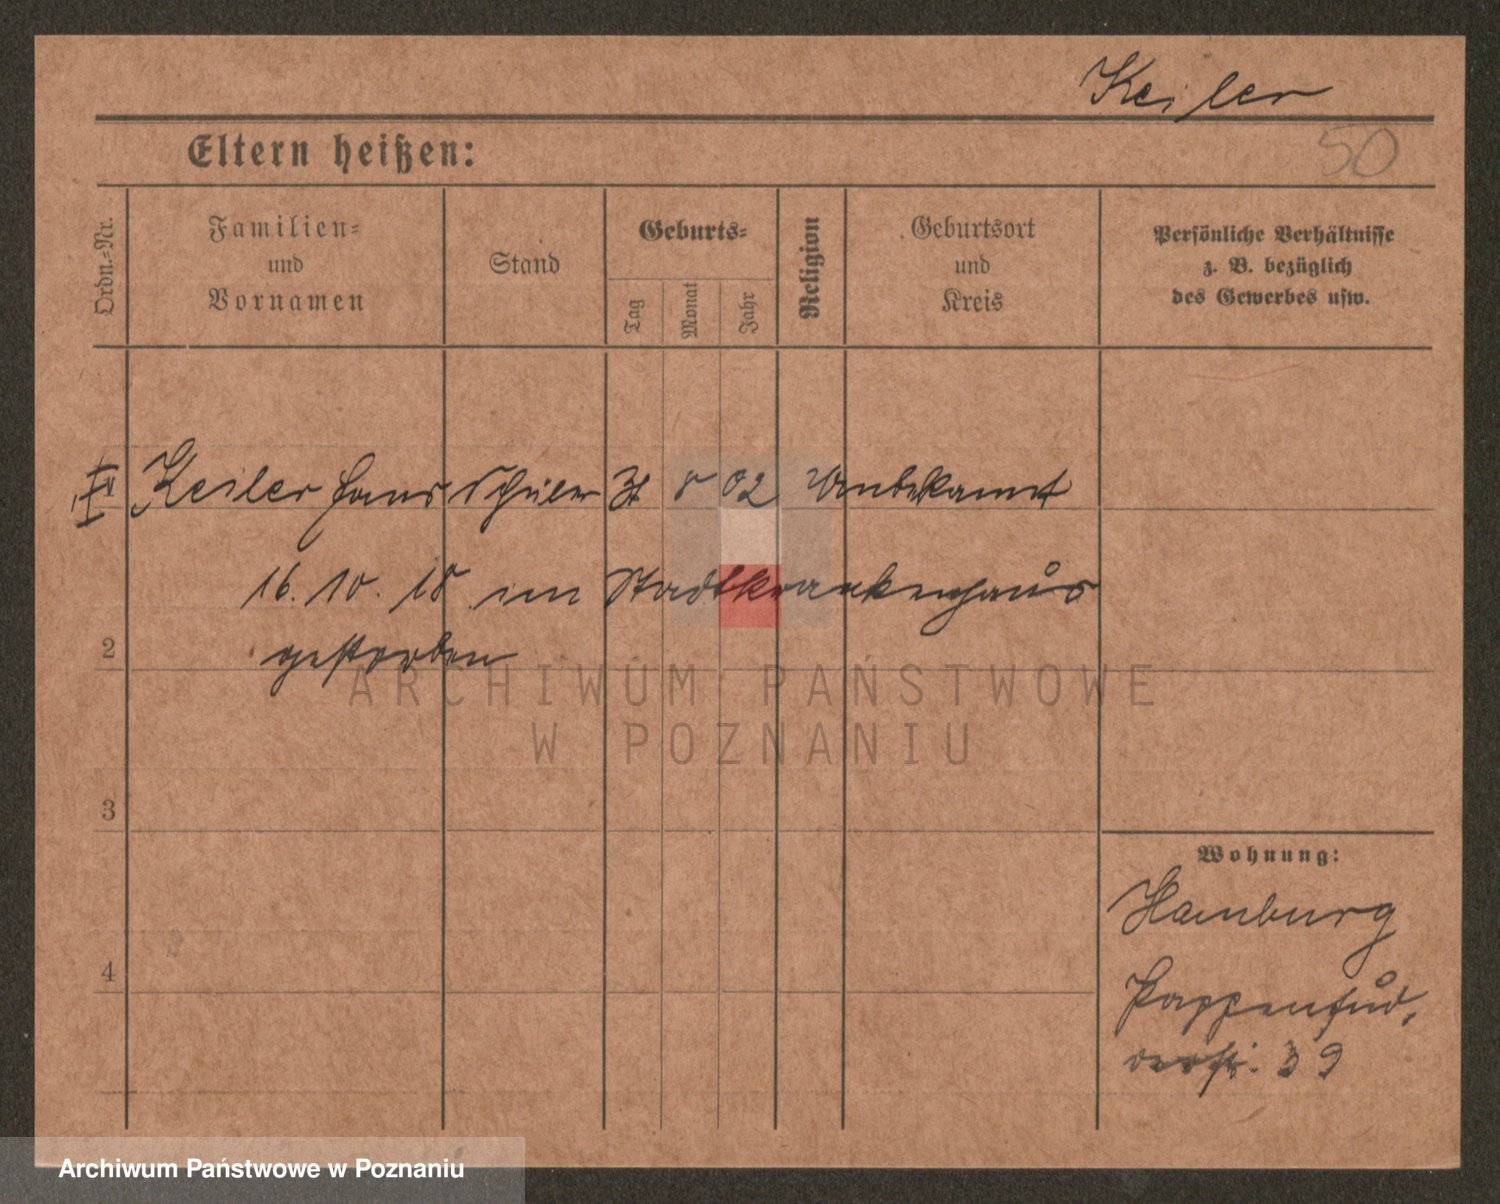 Keiler
50
Eltern heißen:
Ordn.-Nr.
Familien-
und
Vornamen
Stand
Geburts-
Tag
Monat
Jahr
Religion
Geburtsort
und
Kreis
Persönliche Verhältnisse
z. B. bezüglich
des Gewerbes usw.
Keiler Hans Schüler 8 02 Unbekannt
16. 10. 18 im Stadtkrankenhaus
gestorben
2
3
4
ARCHIWUM PAŃSTWOWE
W POZNANIU
Wohnung:
Hamburg
39
Archiwum Państwowe w Poznaniu